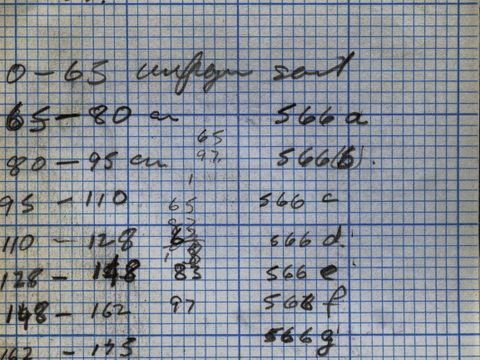 0-65 sand
65-80 cm 566 a
65
80-95 cm 97 566(b).
95-110 65 566 c
110-128 566 d.
128-148 83 566 e
148-162 97 566 f
566 g
162-175